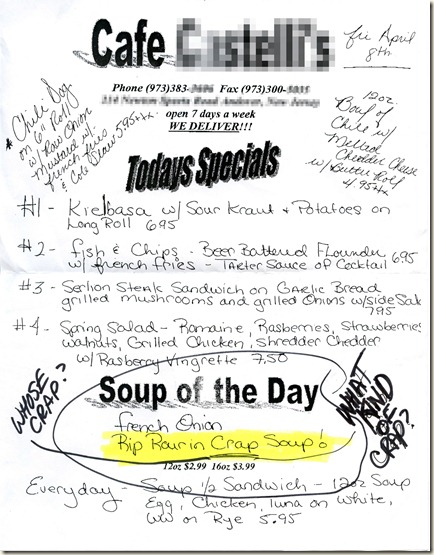 Cafe
fri April
8th
Phone (973)383- Fax (973)300-
open 7 days a week
WE DELIVER!!!
* Chili Dog
on 6" Roll
w/ Raw Onion
Mustard w/
french fries
& Cole Slaw 5.95+tx
12oz.
Bowl of
Chili w/
Melted
Chedder Cheese
w/ Butter Roll
4.95+tx
Todays Specials
#1 - Kielbasa w/ Sour Kraut & Potatoes on
Long Roll 6.95
#2 - fish & Chips - Beer Battered Flounder 6.95
w/ french fries - Tarter Sauce of Cocktail
#3 - Serlion Steak Sandwich on Garlic Bread
grilled mushrooms and grilled Onions w/side Sal
7.95
#4 - Spring Salad - Romaine, Rasberries, Strawberries
walnuts, Grilled Chicken, Shredder Chedder
w/ Rasberry Vingrette 7.50
WHOSE
CRAP?
Soup of the Day
French Onion
Rip Roarin Crap Soup!
12oz $2.99 16oz $3.99
WHAT
KIND
OF
CRAP?
Everyday - Soup 1/2 Sandwich - 12oz Soup
Egg, Chicken, Tuna on White,
WW or Rye 5.95